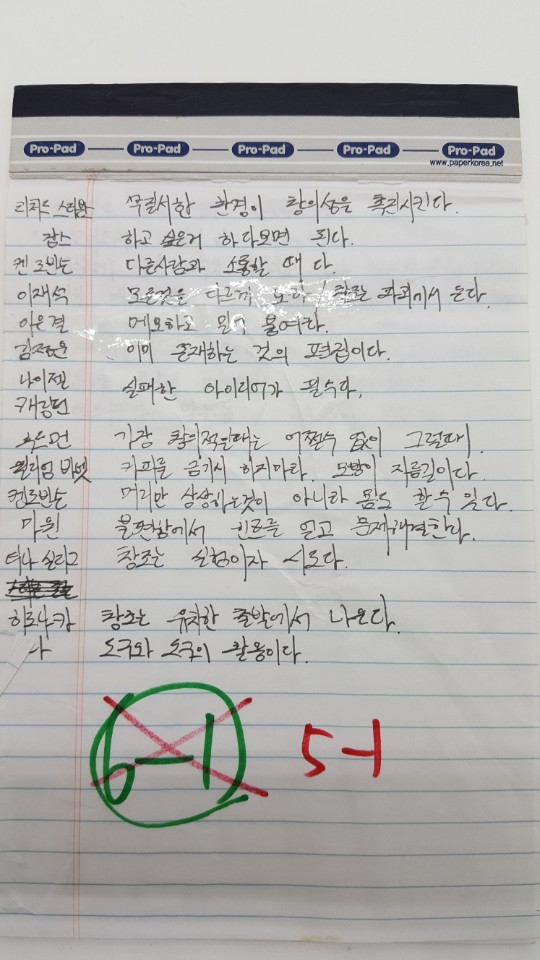 Pro-Pad Pro-Pad Pro-Pad Pro-Pad Pro-Pad
www.paperkorea.net
리차드 스티브 무질서한 환경이 창의성을 촉진시킨다.
잡스 하고 싶은거 하다보면 된다.
켄 로빈슨 다른사람과 소통할 때 다.
이재석 모은것은 파괴에서 온다.
이은결 메모하고 붙여라.
김정운 이미 존재하는 것의 편집이다.
나이젤 실패한 아이디어가 필수다.
캐롱던
가장 창의적일때는 어쩔수 없이 그럴때!
윌리엄 카피를 금기시 하지마라. 모방이 지름길이다.
켄로빈슨 머리만 상상하는것이 아니라 몸도 할수 있다.
마윈 불편함에서 힌트를 얻고 문제해결한다.
티나 실리그 창조는 실험이자 시도다.
창조는 유치한 출발에서 나온다.
나 도구와 도구의 활용이다.
6-1 5-1